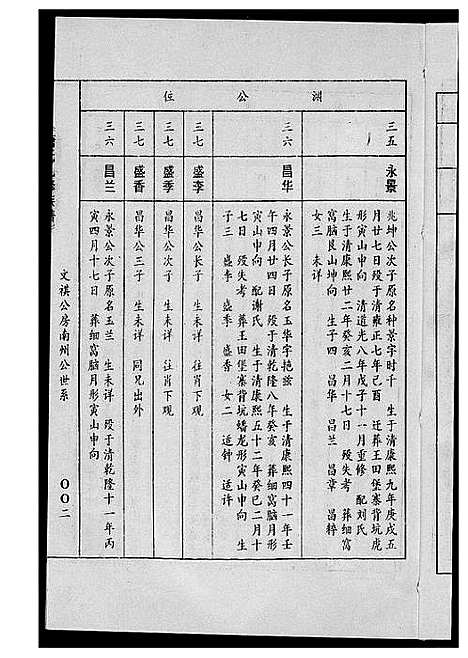 渊公位
三五
永景
兆坤公次子原名种景字时千 生于清康熙九年庚戌五
月廿七日殁于清雍正七年己酉 迁葬王田堡寨背坑虎
形寅山申向 清道光八年戊子十一月重修 配刘氏
生于清康熙廿二年癸亥二月十七日 殁失考 葬细窝
窝脑艮山坤向 生子四 昌华 昌兰 昌章 昌粹
女三 未详
三六
昌华
永景公长子原名玉华字艳兹 生于清康熙四十一年壬
午四月廿四日 殁于清乾隆八年癸亥 葬细窝脑月形
寅山申向 配谢氏 生于清康熙五十二年癸巳二月十
七日 殁失考 葬王田堡寨背坑蟠龙形寅山申向 生
子三 盛李 盛季 盛香 女二 适钟 适许
三七
盛李
昌华公长子 生未详 往肖下观
三七
盛季
昌华公次子 生未详 往肖下观
三七
盛香
昌华公三子 生未详 同兄出外
三六
昌兰
永景公次子原名玉兰 生未详 殁于清乾隆十一年丙
寅四月十七日 葬细窝脑月形寅山申向
文祺公房南州公世系
〇〇二